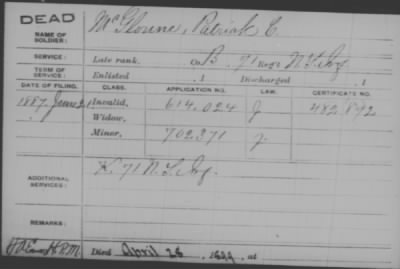 DEAD
NAME OF SOLDIER: McGloune, Patrick C.
SERVICE: Late rank, Co. B, 71 Reg't N.Y. Inf.
TERM OF SERVICE: Enlisted , 1 Discharged , 1
DATE OF FILING. CLASS. APPLICATION NO. LAW. CERTIFICATE NO.
1887, June 21 Invalid, 614.024 J 482.892
Widow,
Minor, 702.371
ADDITIONAL SERVICES: K. 71 N.Y. Inf.
REMARKS:
Died April 26, 1899, at